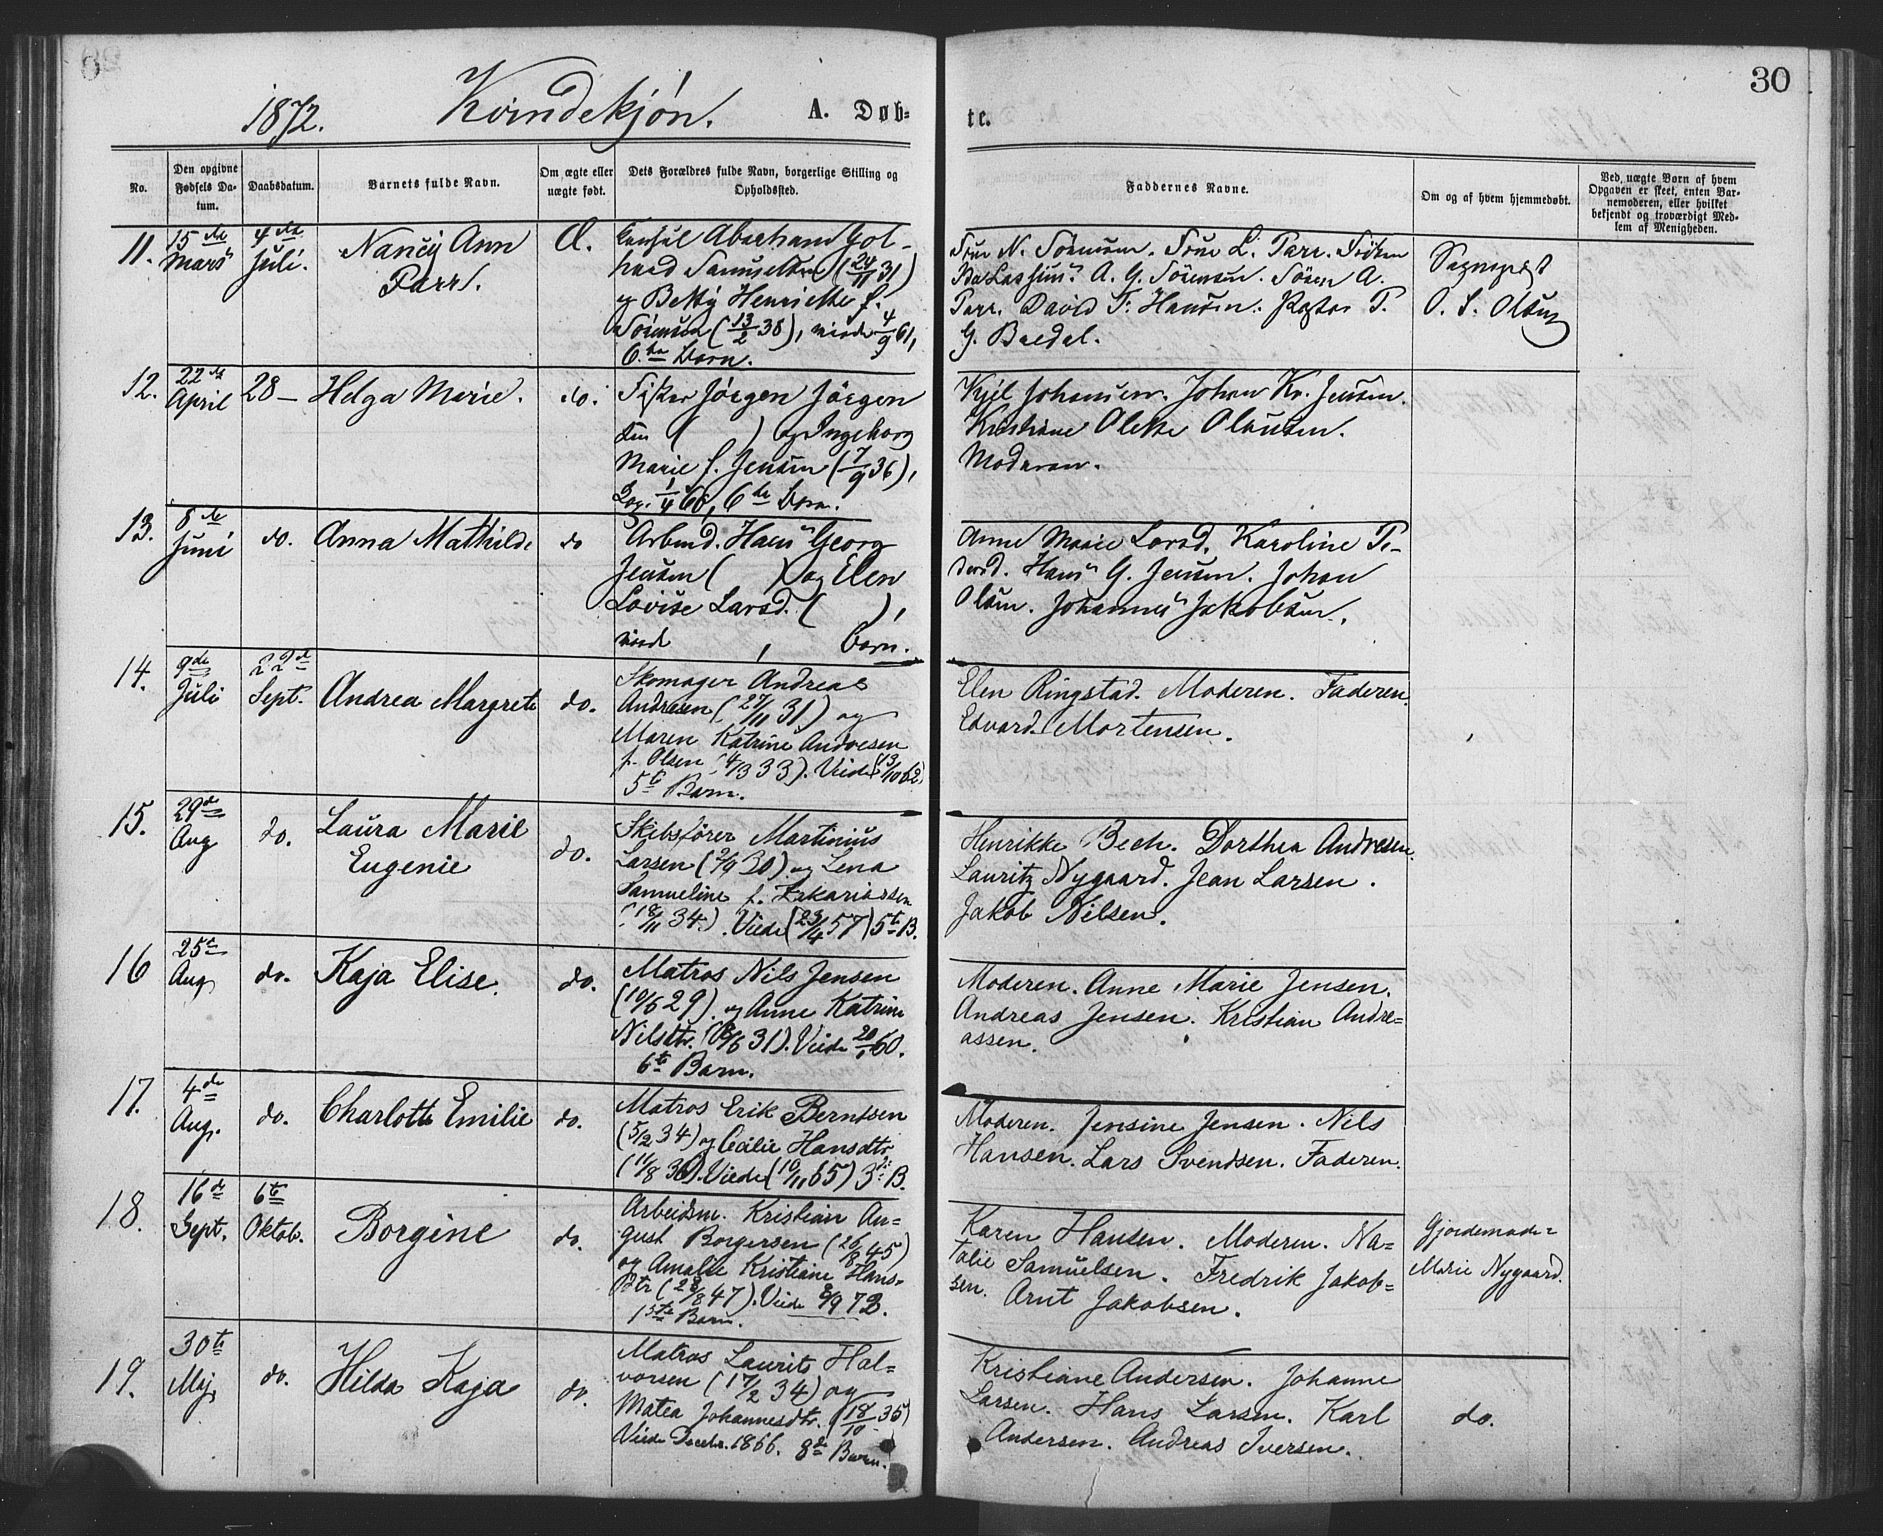 1872. Kvindekjøn. A. Døb-
te.
30
No.
Den opgivne Fødsels Da-
tum.
Daabsdatum.
Barnets fulde Navn.
Om ægte eller
uægte født.
Dets Forældres fulde Navn, borgerlige Stilling og
Opholdssted.
Faddernes Navne.
Om og af hvem hjemmedøbt.
Ved uægte Børn af hvem
Opgaven er skeet, enten Bar-
nemoderen, eller hvilket
bekjendt og troværdigt Med-
lem af Menigheden.
11.
15de
Mars
4de
Juli.
Nancy Ann
Parr.
Æ.
Consul Abertrand Jol-
hard Samuelsen (24/11 31)
og Betty Henriette f.
Sörensen (13/2 38), viede 4/9 61,
6.te Barn.
Frue N. Sörensen. Frue L. Parr. Fröken
Ba Lassius. A. G. Sörensen. Sören A.
Parr. David T. Hansen. Pastor P.
G. Bredal.
Sognepræst
O. S. Olsen
12.
22de
April
28 –
Helga Marie.
do.
Fisker Jörgen Jörgen
sen ( ) og Ingeborg
Marie f. Jensen (7/9 36),
1/4 60, 6te Barn.
Kjel Johansen. Johan Kr. Jensen.
Kristiane Olette Olausen.
Moderen.
13.
8de
Juni
do.
Anna Mathilde
do
Arbmd. Hans Georg
Jensen ( ) og Elen
Lovise Larsd. ( ),
viede , Barn.
Anne Marie Larsd. Karoline Pe-
dersd. Hans G. Jensen. Johan
Olsen. Johannes Jakobsen.
14.
9de
Juli
22de
Sept.
Andrea Margrete
do.
Skomager Andreas
Andresen (27/11 31) og
Maren Katrine Andresen
f. Olsen (4/3 33). Viede (13/10 62)
5te Barn.
Elen Ringstad. Moderen. Faderen.
Edvard Mortensen.
15.
29de
Aug
do.
Laura Marie
Eugenie
do.
Skibsfører Martinius
Larsen (2/9 30) og Lena
Samueline f. Zakariassen
(18/11 34). Viede (23/4 57) 5te B.
Henrikke Bech. Dorthea Andresen.
Lauritz Nygaard. Jean Larsen.
Jakob Nilsen.
16
25de
Aug
do.
Kaja Elise.
do.
Matros Nils Jensen
(10/6 29) og Anne Katrine
Nilsdtr. (8/6 31). Viede 20/1 60.
6te Barn.
Moderen. Anne Marie Jensen.
Andreas Jensen. Kristian Andre=
assen.
17.
4de
Aug.
do.
Charlotte Emilie
do.
Matros Erik Berntsen
(5/2 34) og Cecilie Hansdtr
(11/8 36). Viede (10/11 65) 3die B.
Moderen. Jensine Jensen. Nils
Hansen. Lars Svendsen. Faderen.
18.
16de
Sept.
6te
Oktob.
Borgine
do.
Arbeidsm. Kristian Au=
gust Borgersen (26/8 45)
og Amalie Kristiane Hans-
dtr (28/8 47). Viede 8/9 72.
1ste Barn.
Karen Hansen. Moderen. Na=
talie Samuelsen. Fredrik Jakob=
sen. Arnt Jakobsen.
Gjordemoder
Marie Nygaard.
19.
30te
Maj
do.
Hilda Kaja
do.
Matros Laurits Hal=
vorsen (17/2 34) og
Matea Johannesdtr. (18/10 35)
Viede Decbr. 1866. 8de Barn.
Kristiane Andersen. Johanne
Larsen. Hans Larsen. Karl
Andersen. Andreas Iversen.
do.